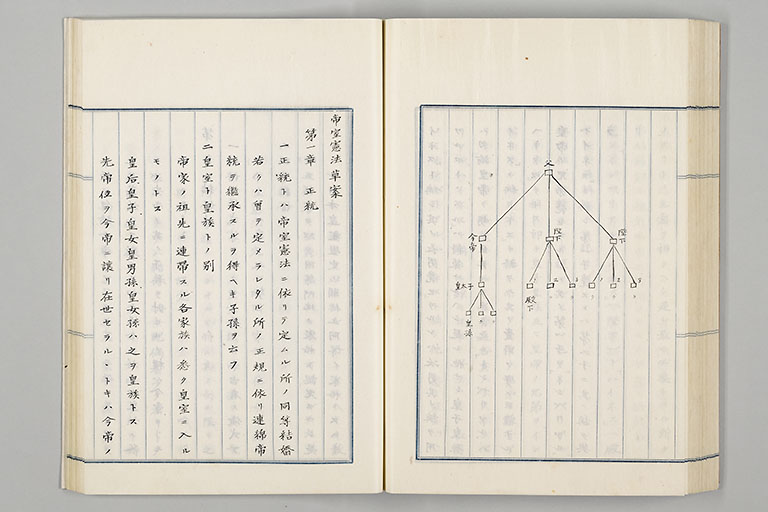 父
陛下
陛下
今帝
皇太子
殿下
皇孫
帝室憲法草案
第一章 正統
一正統トハ帝室憲法ニ依リテ定ムル所ノ同等結婚
若クハ曾テ定メラレタル所ノ正規ニ依リ連綿帝
統ヲ継承スルヲ得ヘキ子孫ヲ云フ
二皇室ト皇族トノ別
帝家ノ祖先ニ連帶スル各家族ハ悉ク皇室ニ入ル
モノトス
皇后皇子皇女皇男孫皇女孫ハ之ヲ皇族トス
先帝位ヲ今帝ニ譲リ在世セラルヽトキハ今帝ノ